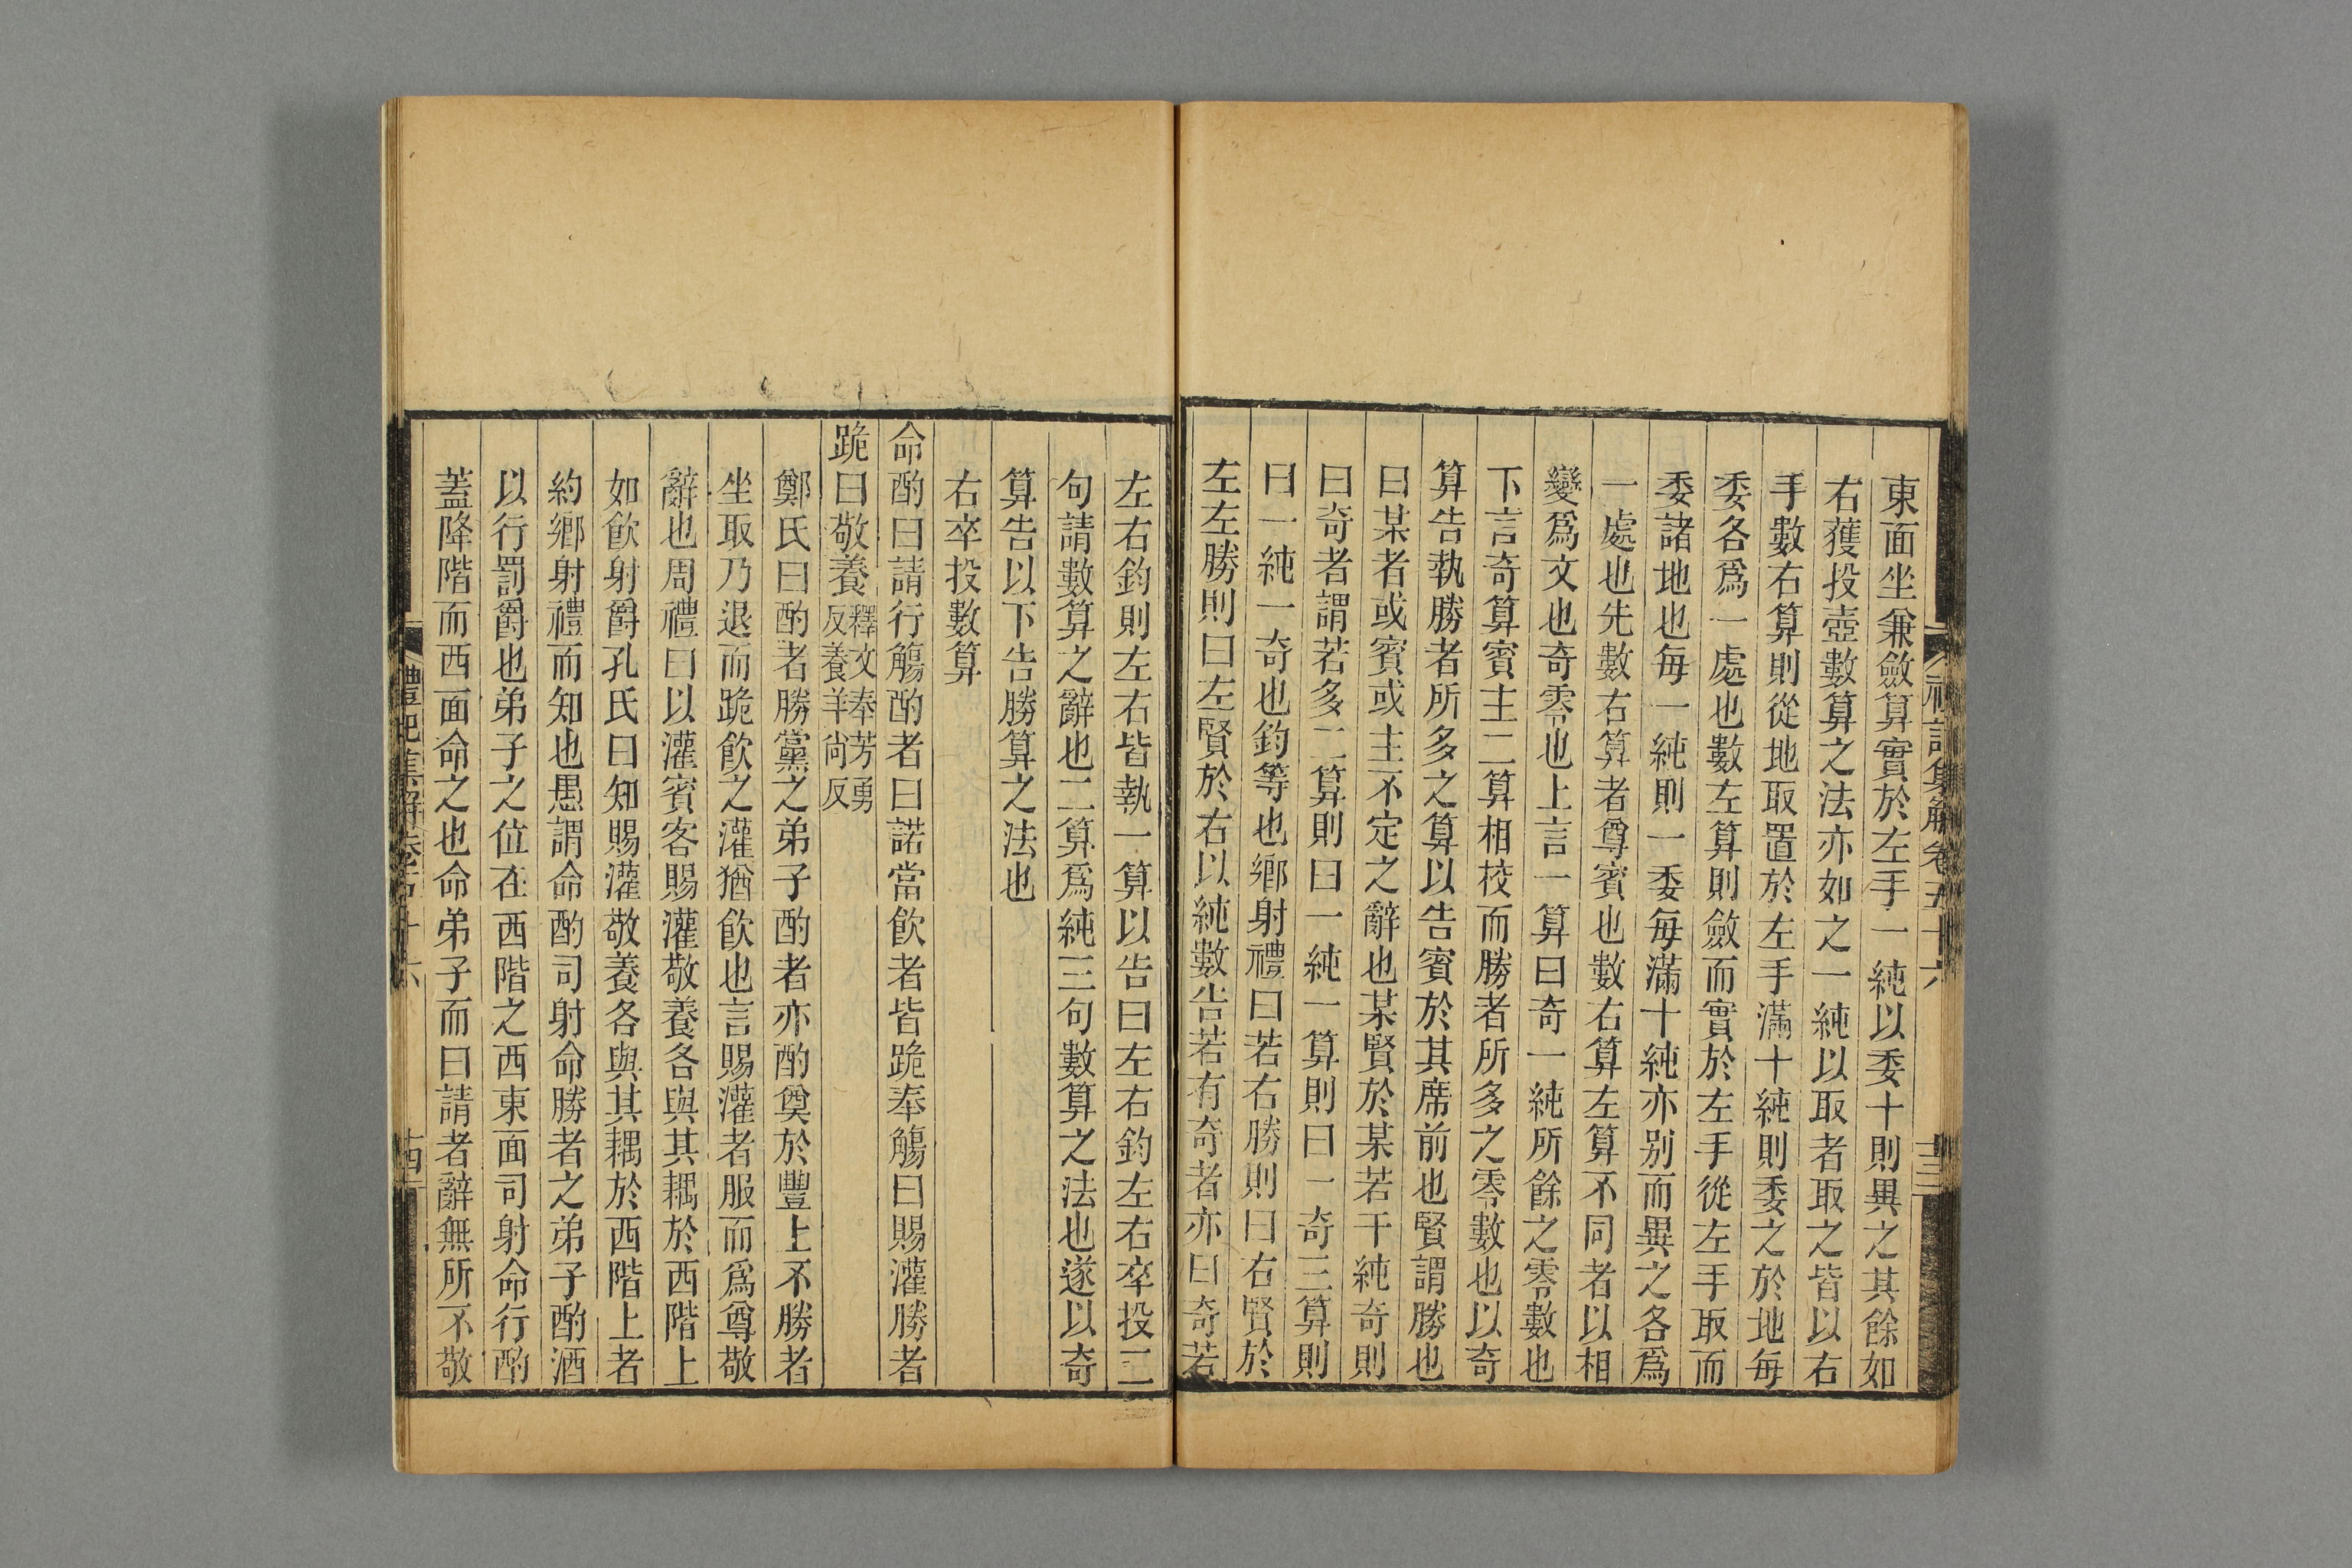 禮記集解卷五十六
十三
東面坐兼斂算實於左手一純以委十則異之其餘如
右獲投壺數算之法亦如之一純以取者取之皆以右
手數右算則從地取置於左手滿十純則委之於地每
委各爲一處也數左算則斂而實於左手從左手取而
委諸地也每一純則一委每滿十純亦別而異之各爲
一處也先數右算者尊賓也數右算左算不同者以相
變爲文也奇零也上言一算曰奇一純所餘之零數也
下言奇算賓主二算相校而勝者所多之零數也以奇
算告執勝者所多之算以告賓於其席前也賢謂勝也
曰某者或賓或主不定之辭也某賢於某若干純奇則
曰奇者謂若多二算則曰一純一算則曰一奇三算則
曰一純一奇也鈞等也鄉射禮曰若右勝則曰右賢於
左左勝則曰左賢於右以純數告若有奇者亦曰奇若
左右鈞則左右皆執一算以告曰左右鈞左右卒投二
句請數算之辭也二算爲純三句數算之法也遂以奇
算告以下告勝算之法也
右卒投數算
命酌曰請行觴酌者曰諾當飲者皆跪奉觴曰賜灌勝者
跪曰敬養釋文奉芳勇
反養羊尚反
鄭氏曰酌者勝黨之弟子酌者亦酌奠於豐上不勝者
坐取乃退而跪飲之灌猶飲也言賜灌者服而爲尊敬
辭也周禮曰以灌賓客賜灌敬養各與其耦於西階上
如飲射爵孔氏曰知賜灌敬養各與其耦於西階上者
約鄉射禮而知也愚謂命酌司射命勝者之弟子酌酒
以行罰爵也弟子之位在西階之西東面司射命行酌
蓋降階而西面命之也命弟子而曰請者辭無所不敬
禮記集解卷五十六
十四